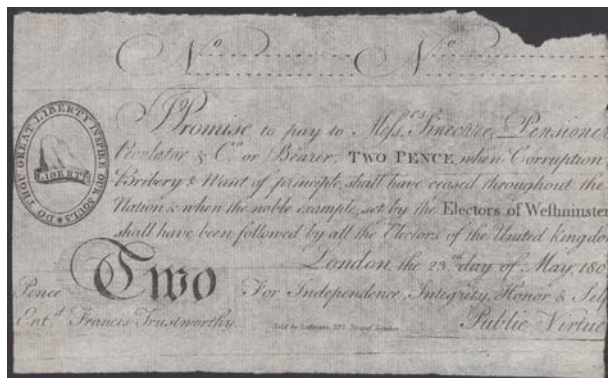 No No
DO THOU GREAT LIBERTY INSPIRE OUR SOULS
LIBERTY
I Promise to pay to Messrs Sinecure, Pensione
Peculator & Co. or Bearer, TWO PENCE, when Corruption
Bribery & Want of principle, shall have ceased throughout the
Nation & when the noble example, set by the Electors of Westminster
shall have been followed by all the Electors of the United kingdo
London, the 23rd day of May, 180
Two
Pence For Independence, Integrity, Honor & Self
Entd Frances Trustworthy. Public Virtue
Sold by Strand London